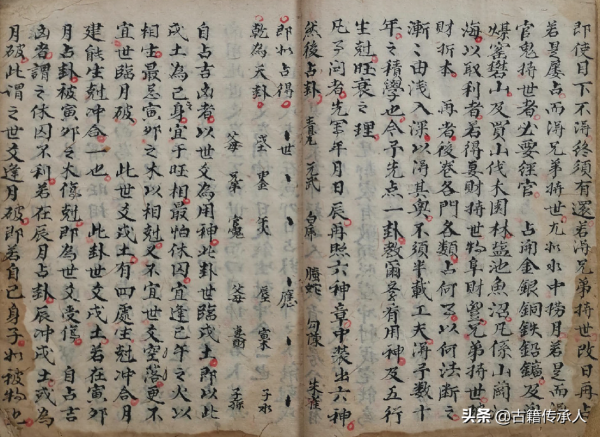 即使目下不淂終須有還若淂兄弟持世改日再占
若是屢占而淂兄弟持世尤如水中撈月若是而淂
官鬼持世者必要經官 占開金銀銅鉄鉛鑛及
爆窑礬山及買山伐大園林塩池魚沼凡係山
海以取利者若得身財持世物阜財豐兄弟持世
財折本 再者後卷各門各類占何事以何法断之
漸之由浅入深以淂其奥不須半載工夫淂予数十
年之積學也今予先点一卦教爾等看有用神及五行
生尅旺衰之理
凡予问者先军年月日辰再照六神章中裝出六神
然後占卦 青龙 玄武 白虎 螣蛇 勾陳 朱雀
即如占得 、世 、 、 、應 、 、
乾為天卦 子水
自占吉凶者以世爻為用神此卦世臨戌土即以此
戌土為己身宜于旺相最怕休囚宜逢巳午之火以
相生最忌寅卯之木以相尅又不宜世爻空落更不
宜世臨月破 此世爻戌土有四處生尅冲合月
建能生尅冲合一也 此卦世爻戌土若在寅卯
月占卦被寅卯之木傷尅即為世爻受傷 自占吉
凶者謂之休囚不利若在辰月占卦辰冲戌土或為
月破此謂之世爻逢月破即若自己身子如被物也
头条 @古籍传承人